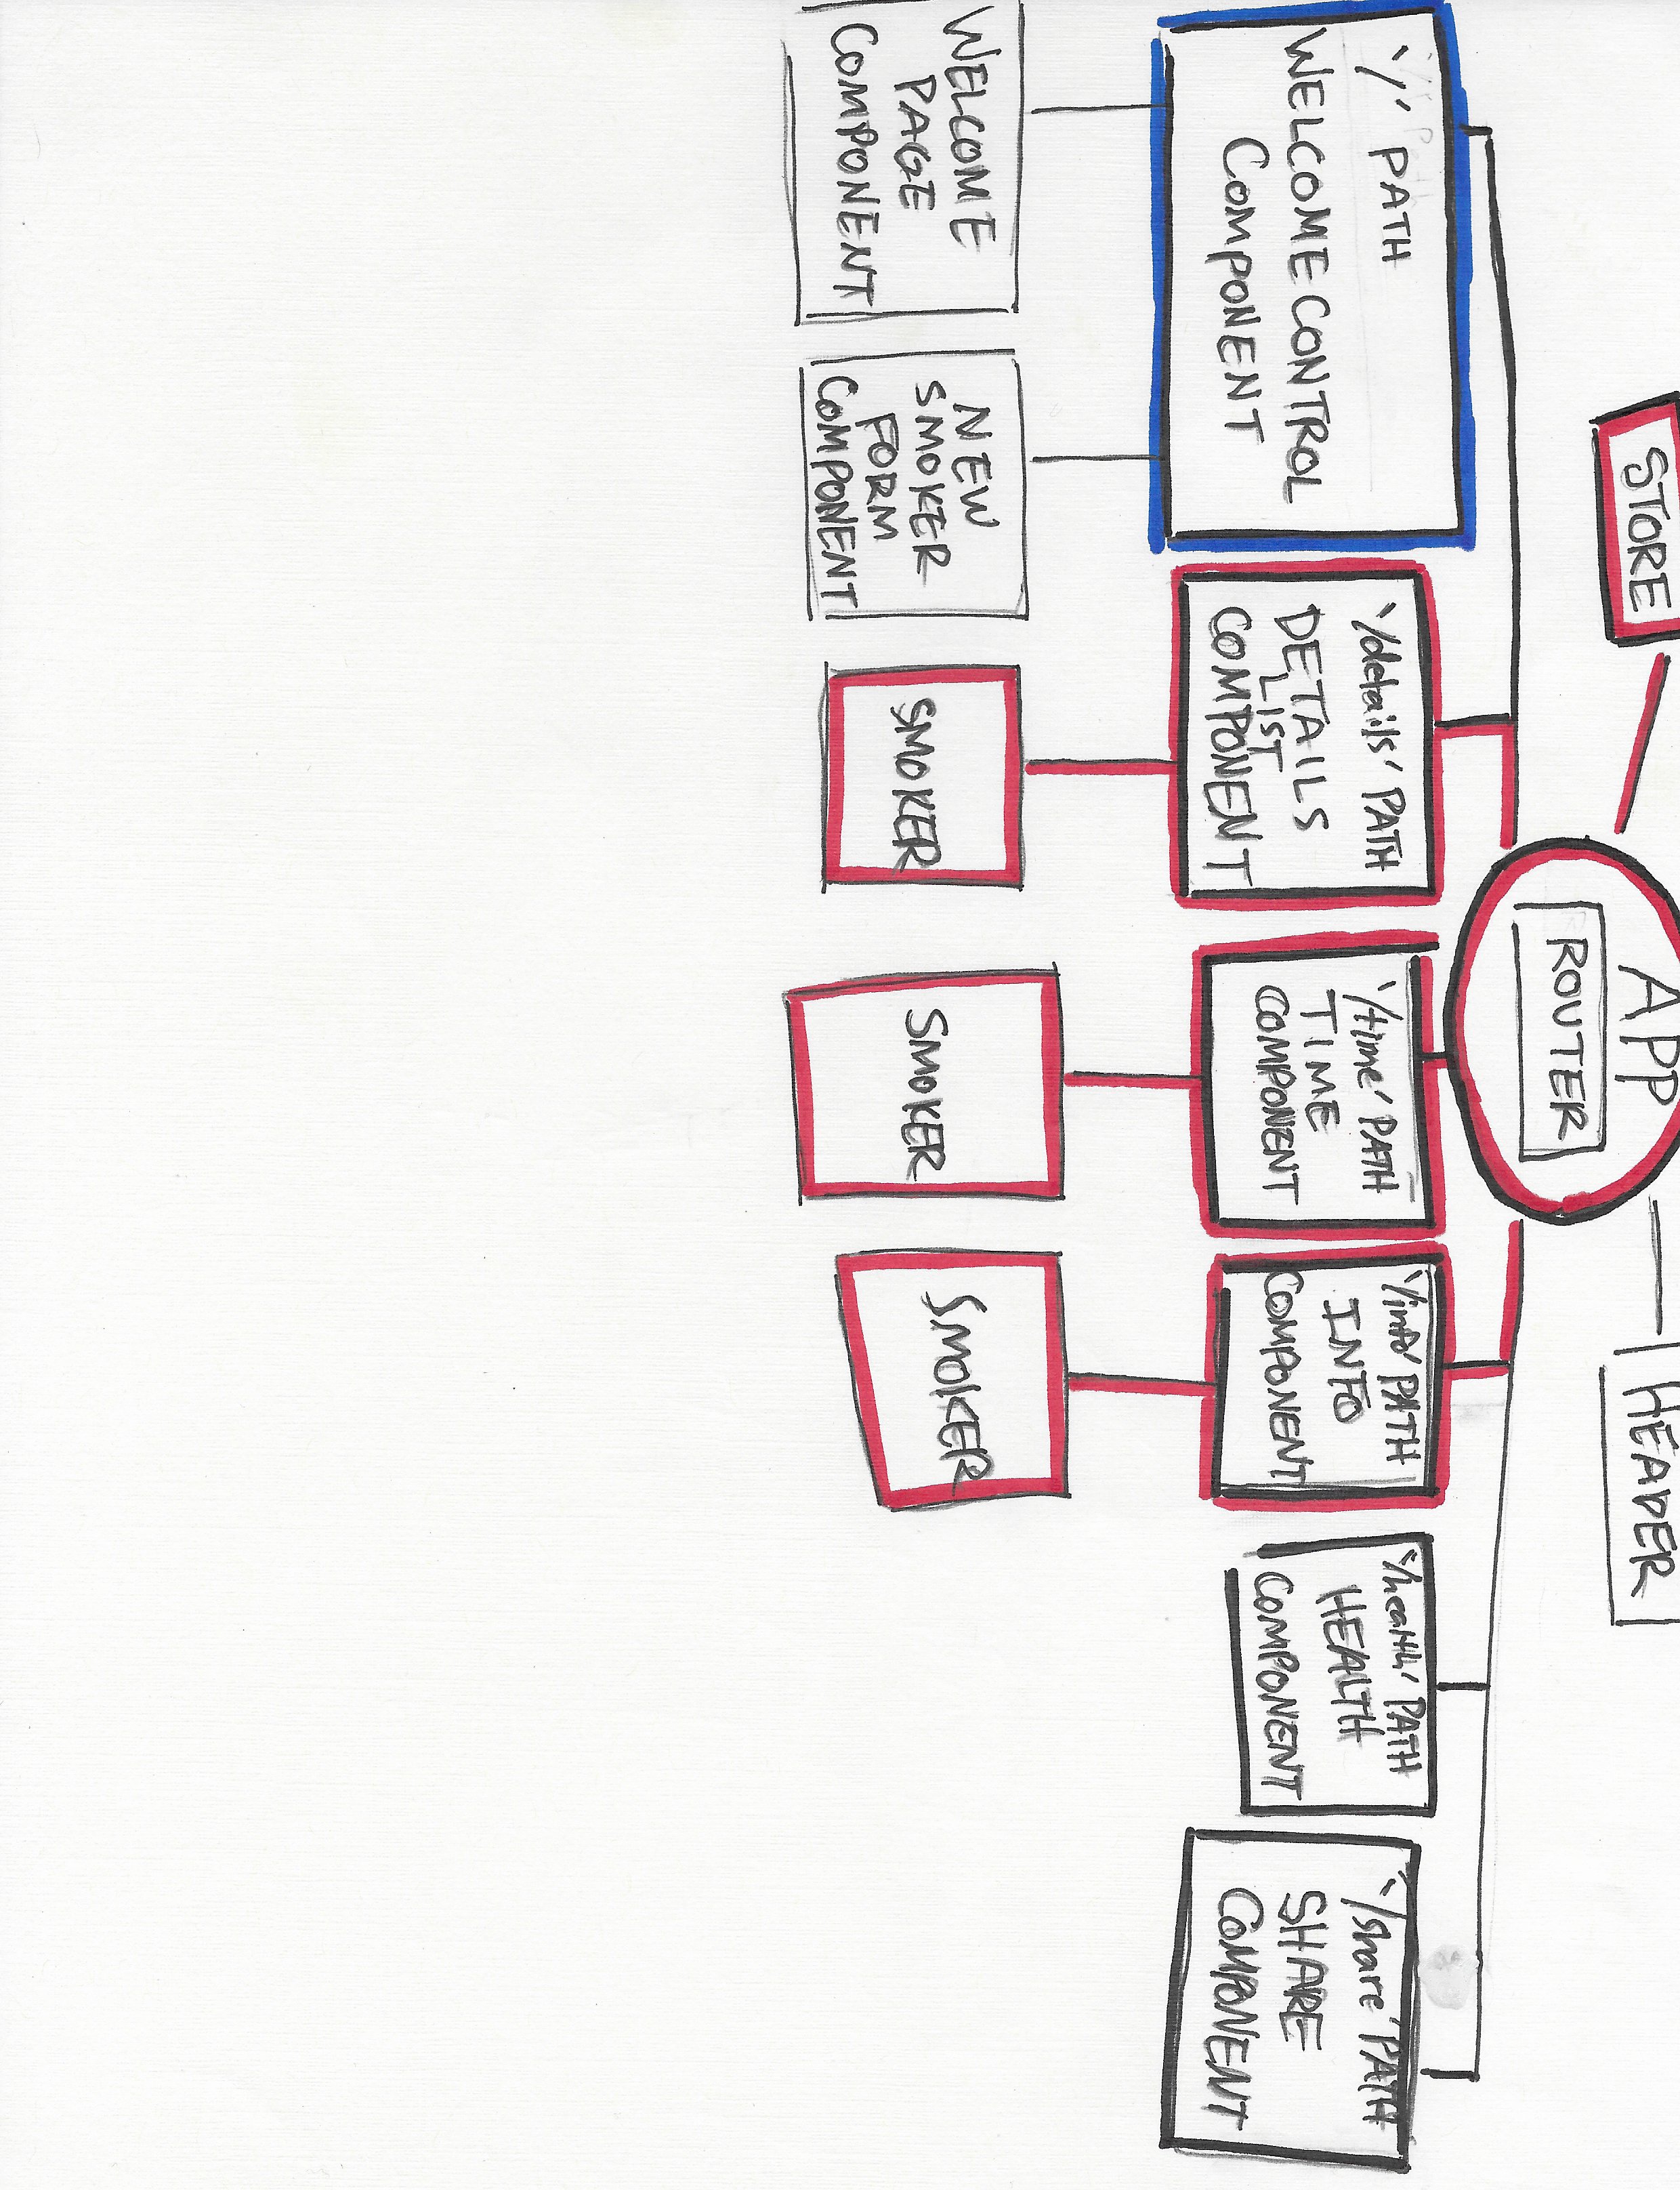 STORE
APP
ROUTER
HEADER
'/' PATH
WELCOME CONTROL
COMPONENT
'/details' PATH
DETAILS
LIST
COMPONENT
'/time' PATH
TIME
COMPONENT
'/info' PATH
INFO
COMPONENT
'/health' PATH
HEALTH
COMPONENT
'/share' PATH
SHARE
COMPONENT
WELCOME
PAGE
COMPONENT
NEW
SMOKER
FORM
COMPONENT
SMOKER
SMOKER
SMOKER